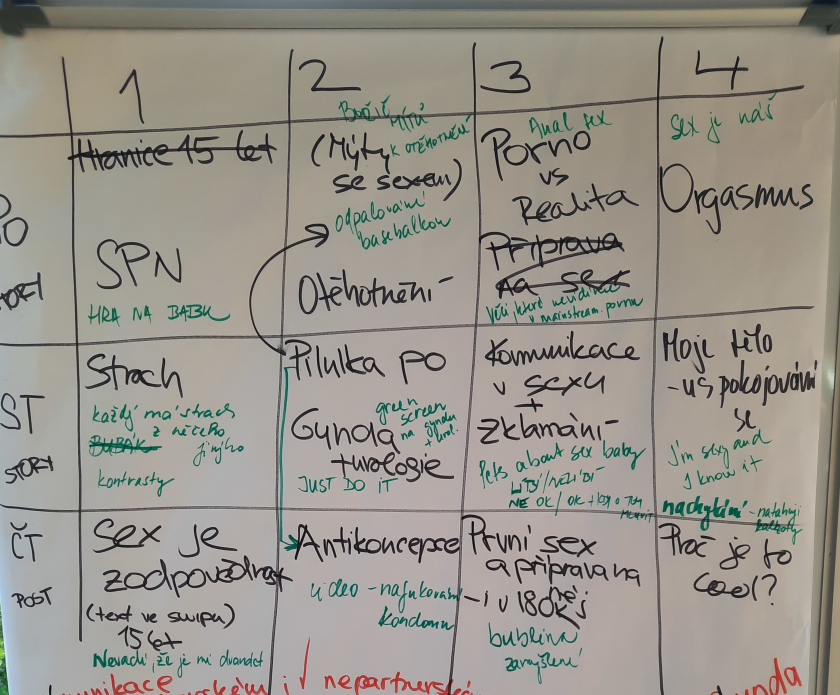 1
2
3
4
PO
STORY
Hranice 15 let
SPN
HRA NA BABU
BOŘIČ MÝTŮ
(Mýty
K OTĚHOTNĚNÍ
se sexem)
odpalování
baseballkou
Otěhotnění
Anal sex
Porno
vs
Realita
Příprava
na sex
Věci, které nevidíme
v mainstream. pornu
sex je náš
Orgasmus
ST
STORY
Strach
každý má strach
z něčeho
BUBÁK
jinýho
kontrasty
Pilulka po
green
screen
na gyndu
+ urol.
Gynda
+ urologie
JUST DO IT
Komunikace
v sexu
+
zklamání
lets about sex baby
LÍBÍ/NELÍBÍ
NE OK/ OK + kdy o tom
mluvit
Moje tělo
- uspokojování
se
I'm sexy and
I know it
nachytání - natahuji
kalhoty
ČT
POST
Sex je
zodpovědnost
(text ve swipu)
15 let
Nevadí, že je mi dvanáct
Antikoncepce
video - nafukování
kondomu
První sex
a příprava na
něj
- i v 18 OK
bublina
zamyšlení
Proč je to
cool?
nepartnerském